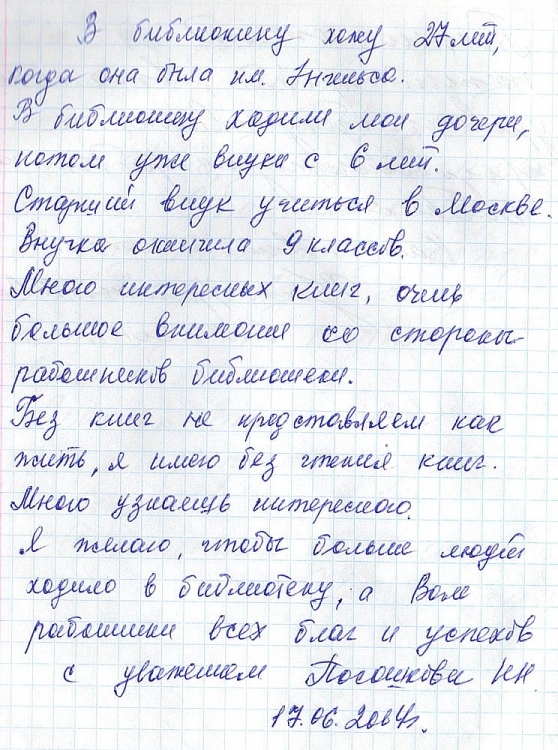 В библиотеку хожу 27 лет,
когда она была им. Энгельса.
В библиотеку ходили мои дочери,
потом уже внуки с 6 лет.
Старший внук учиться в Москве.
Внучка окончила 9 классов.
Много интересных книг, очень
большое внимание со стороны
работников библиотеки.
Без книг не представляем как
жить, я имею без чтения книг.
Много узнаешь интересного.
Я желаю, чтобы больше людей
ходило в библиотеку, а Вам
работники всех благ и успехов
с уважением Н.Н.
17.06.2014г.